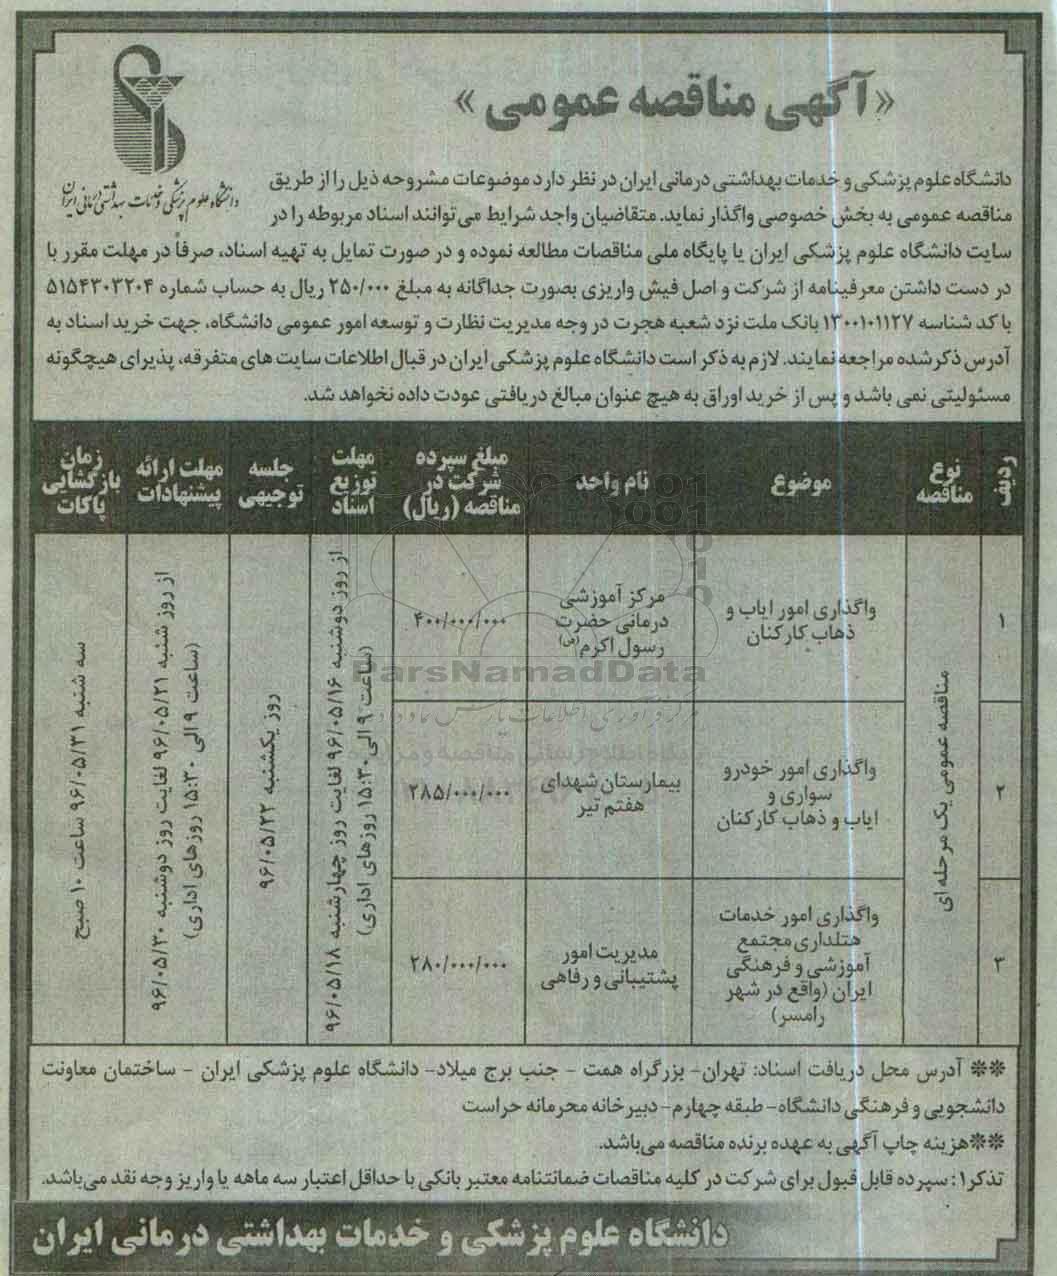 «آگهی مناقصه عمومی»
دانشگاه علوم پزشکی و خدمات بهداشتی درمانی ایران
دانشگاه علوم پزشکی و خدمات بهداشتی درمانی ایران در نظر دارد موضوعات مشروحه ذیل را از طریق
مناقصه عمومی به بخش خصوصی واگذار نماید. متقاضیان واجد شرایط می‌توانند اسناد مربوطه را در
سایت دانشگاه علوم پزشکی ایران یا پایگاه ملی مناقصات مطالعه نموده و در صورت تمایل به تهیه اسناد، صرفاً در مهلت مقرر با
در دست داشتن معرفینامه از شرکت و اصل فیش واریزی بصورت جداگانه به مبلغ ۲۵۰/۰۰۰ ریال به حساب شماره ۵۱۵۴۳۰۳۲۰۴
با کد شناسه ۱۳۰۰۱۰۱۱۲۷ بانک ملت نزد شعبه هجرت در وجه مدیریت نظارت و توسعه امور عمومی دانشگاه، جهت خرید اسناد به
آدرس ذکر شده مراجعه نمایند. لازم به ذکر است دانشگاه علوم پزشکی ایران در قبال اطلاعات سایت های متفرقه، پذیرای هیچگونه
مسئولیتی نمی باشد و پس از خرید اوراق به هیچ عنوان مبالغ دریافتی عودت داده نخواهد شد.
ردیف
نوع
مناقصه
موضوع
نام واحد
مبلغ سپرده
شرکت در
مناقصه (ریال)
مهلت
توزیع
اسناد
جلسه
توجیهی
مهلت ارائه
پیشنهادات
زمان
بازگشایی
پاکات
۱
مناقصه عمومی یک مرحله ای
واگذاری امور ایاب و
ذهاب کارکنان
مرکز آموزشی
درمانی حضرت
رسول اکرم(ص)
۴۰۰/۰۰۰/۰۰۰
از روز دوشنبه ۹۶/۰۵/۱۶ لغایت روز چهارشنبه ۹۶/۰۵/۱۸
(ساعت ۹ الی ۱۵:۳۰ روزهای اداری)
روز یکشنبه ۹۶/۰۵/۲۲
از روز شنبه ۹۶/۰۵/۲۱ لغایت روز دوشنبه ۹۶/۰۵/۳۰
(ساعت ۹ الی ۱۵:۳۰ روزهای اداری)
سه شنبه ۹۶/۰۵/۳۱ ساعت ۱۰ صبح
۲
واگذاری امور خودرو
سواری و
ایاب و ذهاب کارکنان
بیمارستان شهدای
هفتم تیر
۲۸۵/۰۰۰/۰۰۰
۳
واگذاری امور خدمات
هتلداری مجتمع
آموزشی و فرهنگی
ایران (واقع در شهر
رامسر)
مدیریت امور
پشتیبانی و رفاهی
۲۸۰/۰۰۰/۰۰۰
ParsNamadData
** آدرس محل دریافت اسناد: تهران- بزرگراه همت - جنب برج میلاد- دانشگاه علوم پزشکی ایران - ساختمان معاونت
دانشجویی و فرهنگی دانشگاه- طبقه چهارم- دبیرخانه محرمانه حراست
**هزینه چاپ آگهی به عهده برنده مناقصه می‌باشد.
تذکر۱: سپرده قابل قبول برای شرکت در کلیه مناقصات ضمانتنامه معتبر بانکی با حداقل اعتبار سه ماهه یا واریز وجه نقد می‌باشد.
دانشگاه علوم پزشکی و خدمات بهداشتی درمانی ایران